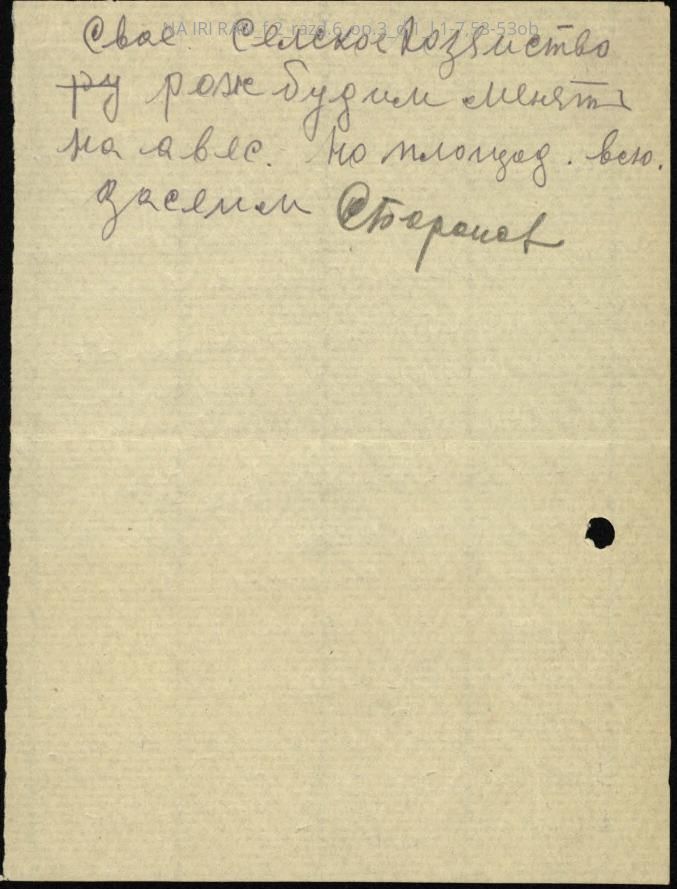 NA IRI RAN_f.2_razd.6_op.3_d.1_l.1-7,53-53ob
Свае Селскоехозяиство
ру рож будим менят
на авес. но площад. всю.
засеим Старанов